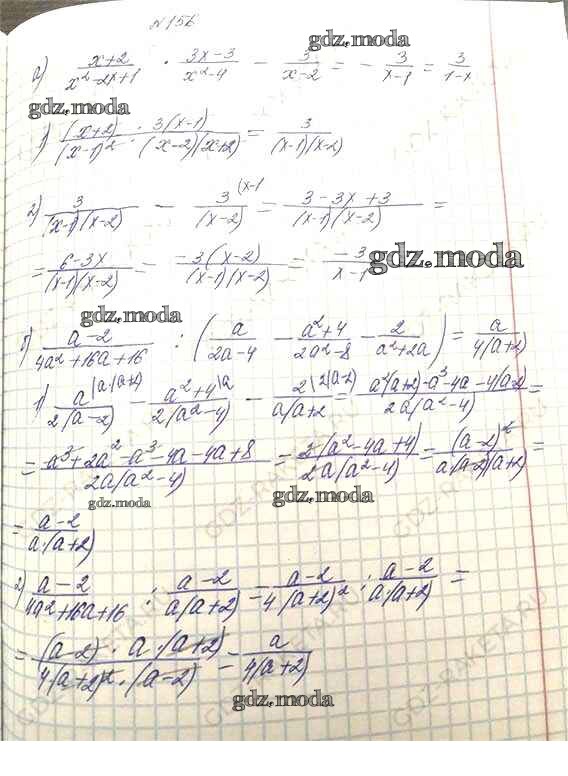 №156
gdz.moda
а) (x+2)/(x²-2x+1) · (3x-3)/(x²-4) - 3/(x-2) = - 3/(x-1) = 3/(1-x)
gdz.moda
1) (x+2)/(x-1)² · 3(x-1)/((x-2)(x+2)) = 3/((x-1)(x-2))
2) 3/((x-1)(x-2)) - 3/(x-2) (x-1 = (3-3x+3)/((x-1)(x-2)) =
= (6-3x)/((x-1)(x-2)) = -3(x-2)/((x-1)(x-2)) = -3/(x-1)
gdz.moda
gdz.moda
(a-2)/(4a²+16a+16) : (a/(2a-4) - (a²+4)/(2a²-8) - 2/(a²+2a)) = a/(4(a+2))
1) a/(2(a-2)) (a(a+2) - (a²+4)/(2(a²-4)) (a - 2/(a(a+2)) (2(a-2) = (a²(a+2)-a³-4a-4(a-2)/(2a(a²-4)) =
= (a³+2a²-a³-4a-4a+8)/(2a(a²-4)) = 2(a²-4a+4)/(2a(a²-4)) = (a-2)²/(a(a-2)(a+2)) =
gdz.moda
gdz.moda
= (a-2)/(a·(a+2))
gdz.moda
2) (a-2)/(4a²+16a+16) : (a-2)/(a(a+2)) = (a-2)/(4(a+2)²) : (a-2)/(a·(a+2)) =
= ((a-2)·a·(a+2))/(4(a+2)²·(a-2)) = a/(4(a+2))
gdz.moda
GDZ-RAKETA.RU